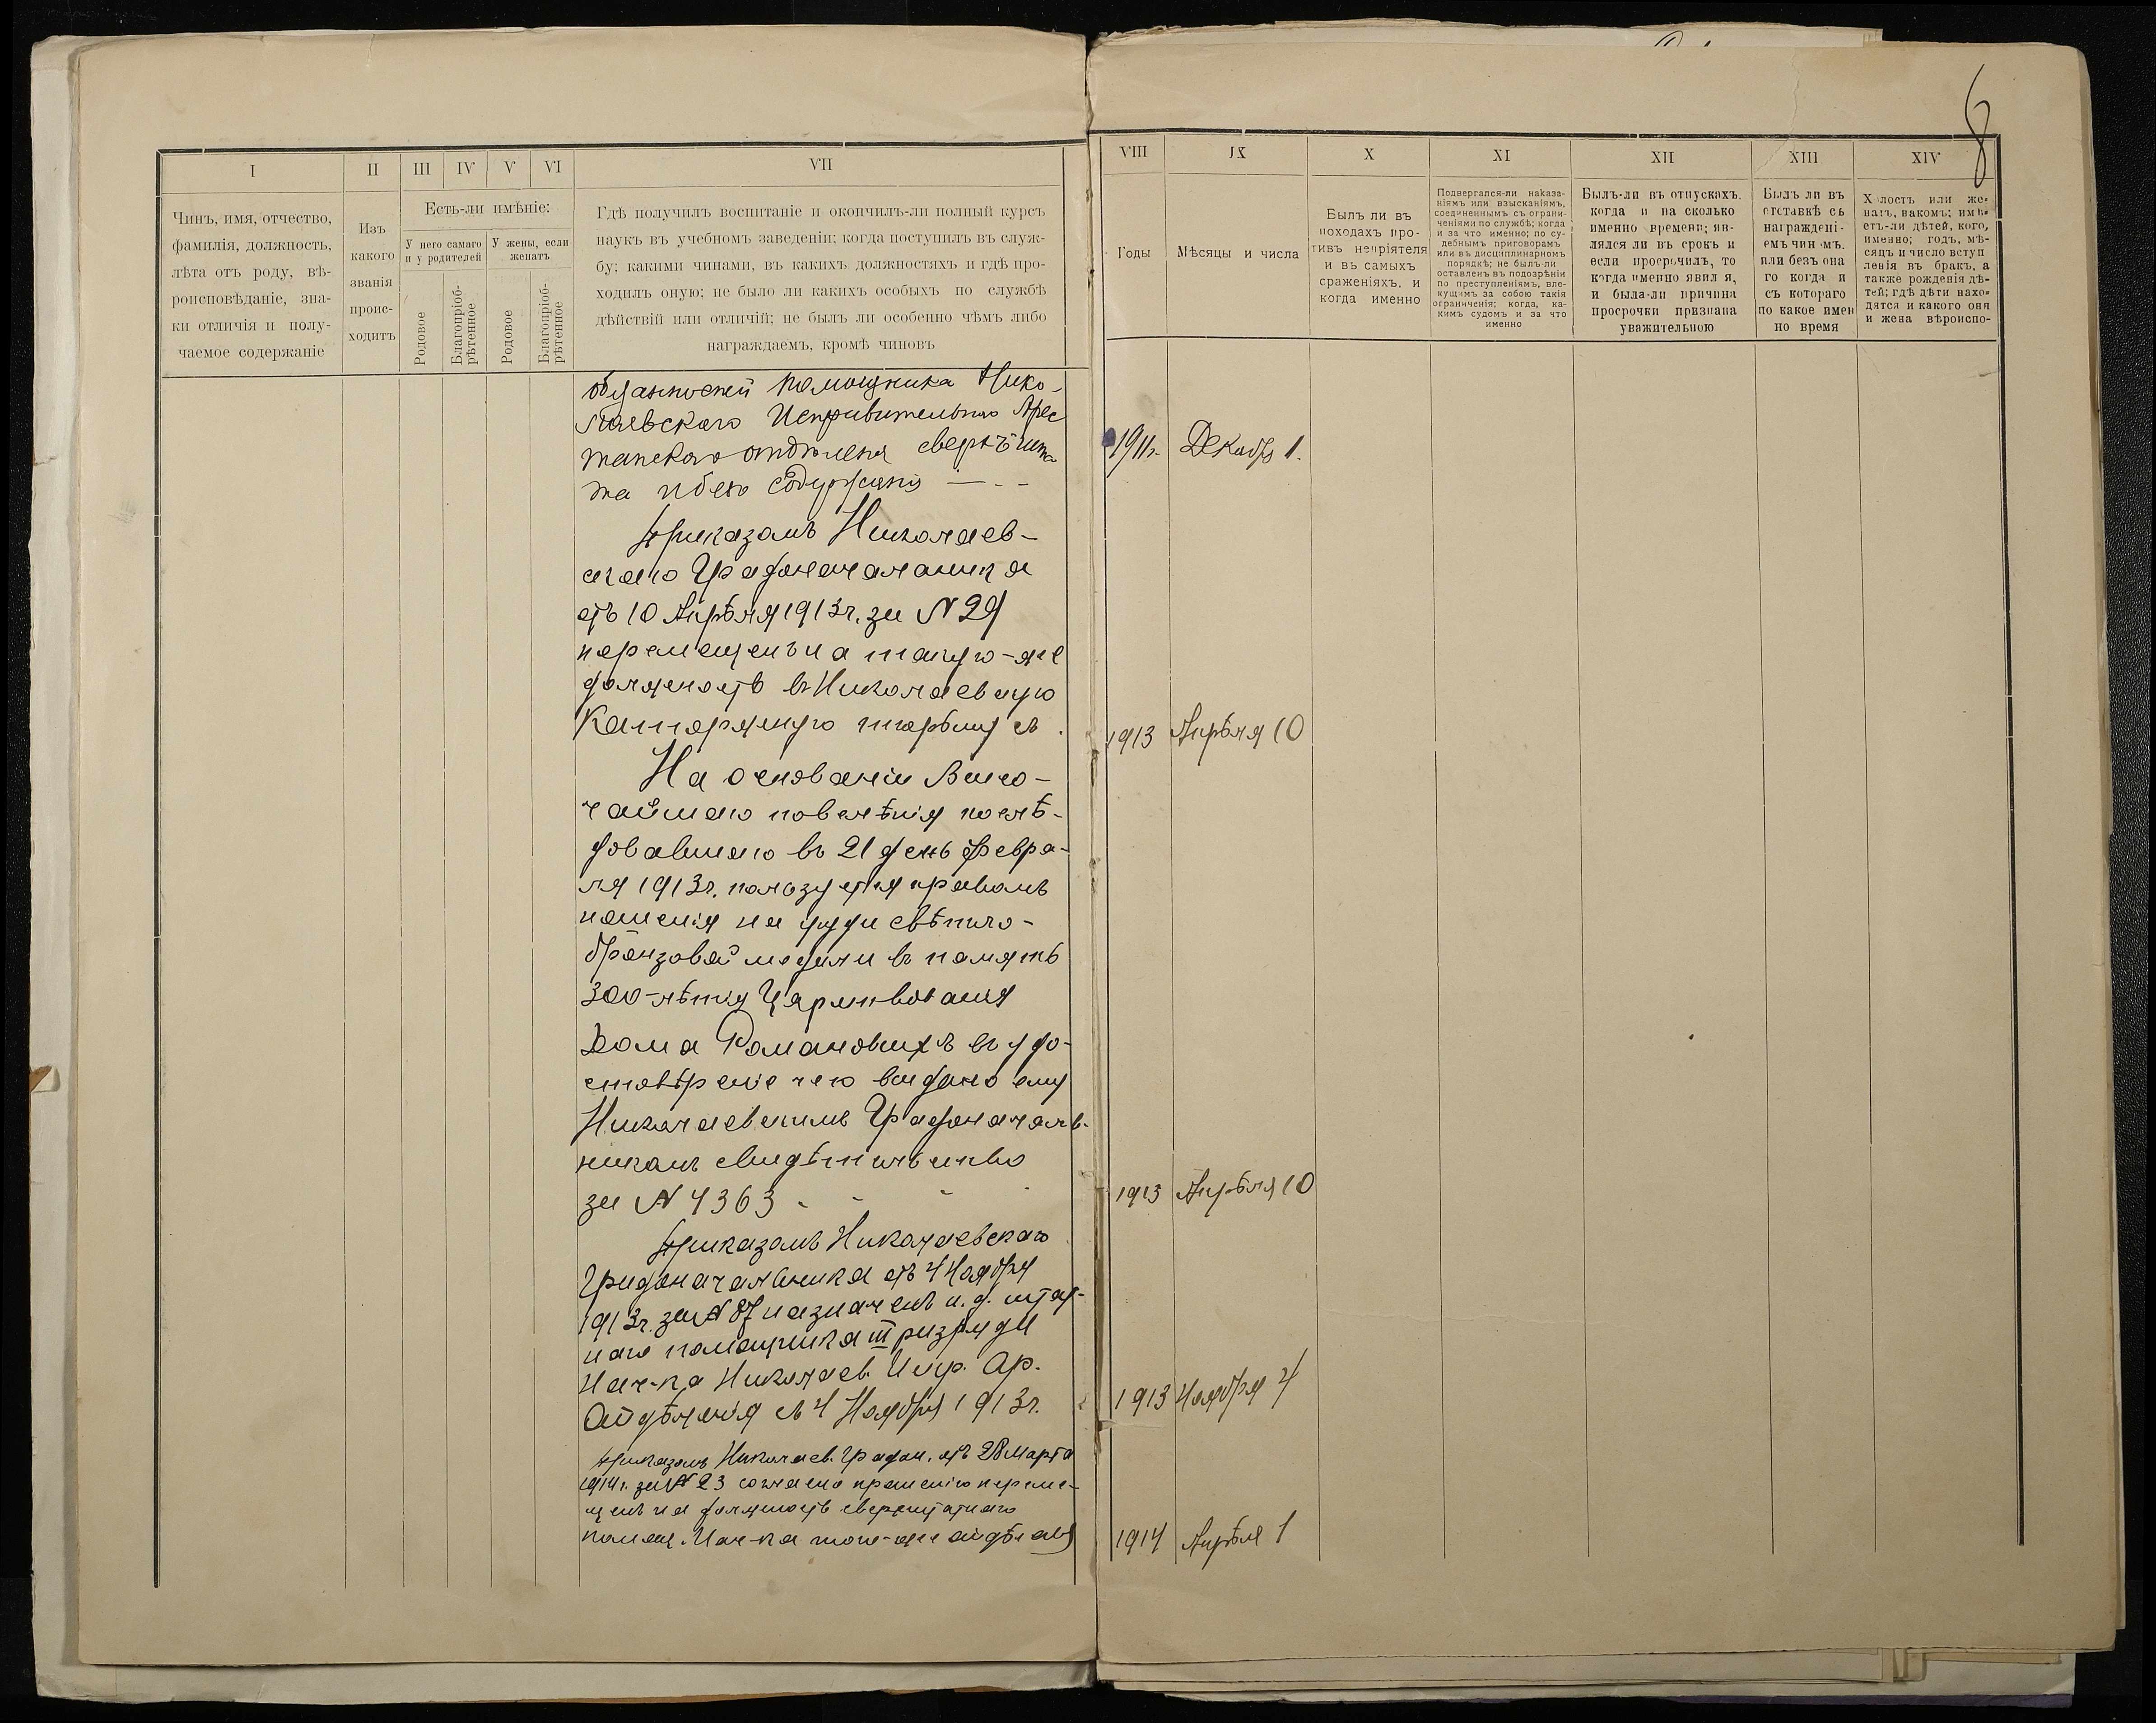 8
I
II
III
IV
V
VI
VII
VIII
IX
X
XI
XII
XIII
XIV
Чинъ, имя, отчество,
фамилія, должность,
лѣта отъ роду, вѣ-
роисповѣданіе, зна-
ки отличія и полу-
чаемое содержаніе
Изъ
какого
званія
проис-
ходитъ
Есть-ли имѣніе:
У него самаго
и у родителей
У жены, если
женатъ
Родовое
Благопріоб-
рѣтенное
Родовое
Благопріоб-
рѣтенное
Гдѣ получилъ воспитаніе и окончилъ-ли полный курсъ
наукъ въ учебномъ заведеніи; когда поступилъ въ служ-
бу; какими чинами, въ какихъ должностяхъ и гдѣ про-
ходилъ оную; не было ли какихъ особыхъ по службѣ
дѣйствій или отличій; не былъ ли особенно чѣмъ либо
награждаемъ, кромѣ чиновъ
Годы
Мѣсяцы и числа
Былъ ли въ
походахъ про-
тивъ непріятеля
и въ самыхъ
сраженіяхъ, и
когда именно
Подвергался-ли наказа-
ніямъ или взысканіямъ,
соединеннымъ съ ограни-
ченіями по службѣ; когда
и за что именно; по су-
дебнымъ приговорамъ
или въ дисциплинарномъ
порядкѣ; не былъ-ли
оставленъ въ подозрѣніи
по преступленіямъ, вле-
кущимъ за собою такія
ограниченія; когда, ка-
кимъ судомъ и за что
именно
Былъ-ли въ отпускахъ.
когда и на сколько
именно времени; яв-
лялся ли въ срокъ и
если просрочилъ, то
когда именно явил я,
и была-ли причина
просрочки признана
уважительною
Былъ ли въ
отставкѣ съ
награждені-
емъ чиномъ.
или безъ она
го когда и
съ котораго
по какое имен
но время
Холостъ или же-
натъ, накомъ; имѣ-
етъ-ли дѣтей, кого,
именно; годъ, мѣ-
сяцъ и число вступ
ленія въ бракъ, а
также рожденія дѣ-
тей; гдѣ дѣти нахо-
дятся и какого они
и жена вѣроиспо-
обязанностей помощника Нико-
лаевскаго Исправительнаго Арес
танскаго отдѣленія сверхъ шта
та и безъ содержанія
1911г. Декабря 1.
Приказомъ Николаев-
скаго Градоначальника
отъ 10 Апрѣля 1913г. за N 29
перемещенъ на такую-же
должность въ Николаевскую
Каторжную тюрьму съ
1913 Апрѣля 10
На основаніи Высо-
чайшаго повелѣнія послѣ-
довавшаго въ 21 день Февра-
ля 1913г. пользуется правомъ
ношенія на груди свѣтло-
бронзовой медали въ память
300-лѣтія Царствованія
Дома Романовыхъ въ удо-
стовѣреніе чего выдано ему
Николаевскимъ Градоначаль-
никомъ свидѣтельство
за N 4363
1913 Апрѣля 10
Приказомъ Николаевскаго
Градоначальника отъ 4 Ноября
1913г. за N 87 назначенъ и.д. штат-
наго помощника III разряда
Нач-ка Николаев. Испр. Ар.
Отдѣленія съ 4 Ноября 1913г.
1913 Ноября 4
Приказомъ Николаев. Градон. отъ 28 Марта
1914г. за N 23 согласно прошенію переме-
щенъ на должность сверхштатнаго
помощ. Нач-ка того-же отдѣленія
1914 Апрѣля 1